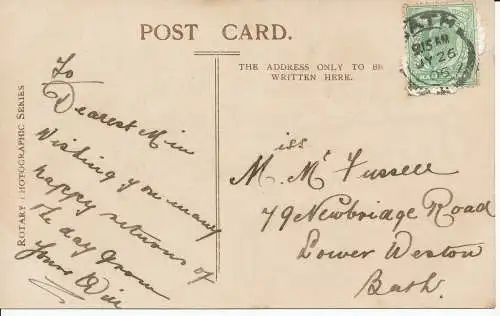 POST CARD.
THE ADDRESS ONLY TO BE
WRITTEN HERE.
ROTARY PHOTOGRAPHIC SERIES
To
Dearest Min
Wishing you many
happy returns of
the day from
Yours Will
BATH
8.15 AM
JY 26
05
Miss
M. Mc Fussell
79 Newbridge Road
Lower Weston
Bath.